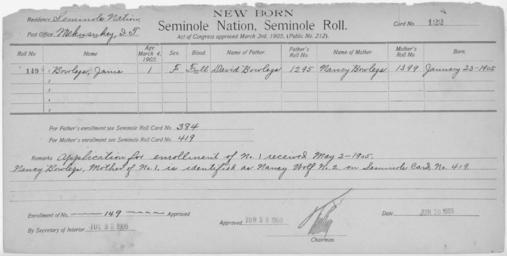 NEW BORN
Residence Seminole Nation
Seminole Nation, Seminole Roll.
Card No. 122
Post Office, Mekusukey, I.T.
Act of Congress approved March 3rd, 1905, (Public No. 212).
Roll No Name Age March 4, 1905. Sex. Blood. Name of Father. Father's Roll No. Name of Mother. Mother's Roll No. Born.
149 Bowlegs, Janie 1 F Full David Bowlegs 1295 Nancy Bowlegs 1399 January 23-1905
For Father's enrollment see Seminole Roll Card No. 384
For Mother's enrollment see Seminole Roll Card No. 419
Remarks Application for enrollment of No. 1 received May 2-1905.
Nancy Bowlegs, Mother of No. 1, is identified as Nancy Wolf No. 2 on Seminole Card No. 419.
Enrollment of No. 149 Approved
By Secretary of Interior 1905
Approved, 1905
Chairman
Date 1905